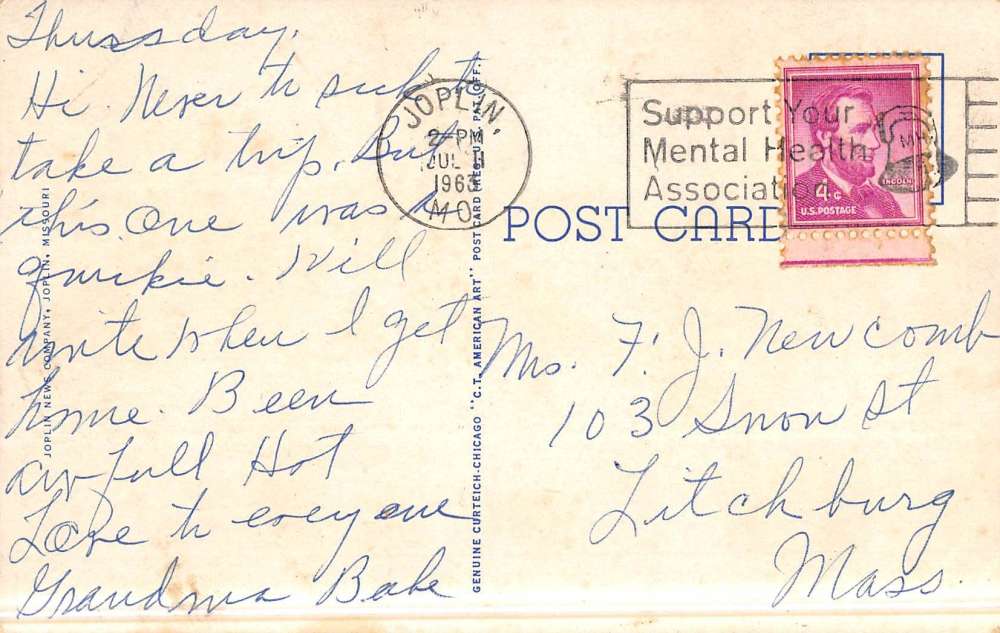 Thursday.
Hi. Never to sick to
take a trip. But
this one was a
quickie. Will
write when I get
home. Been
awfull Hot
Love to everyone
Grandma Babe
JOPLIN NEWS COMPANY, JOPLIN, MISSOURI
GENUINE CURTEICH-CHICAGO "C.T. AMERICAN ART" POST CARD (REG. U.S. PAT. OFF.)
JOPLIN,
2 PM
JUL 11
1963
MO.
Support Your
Mental Health
Association
MH
LINCOLN
4¢
U.S. POSTAGE
POST CARD
Mrs. F. J. Newcomb
103 Snow St
Fitchburg
Mass.